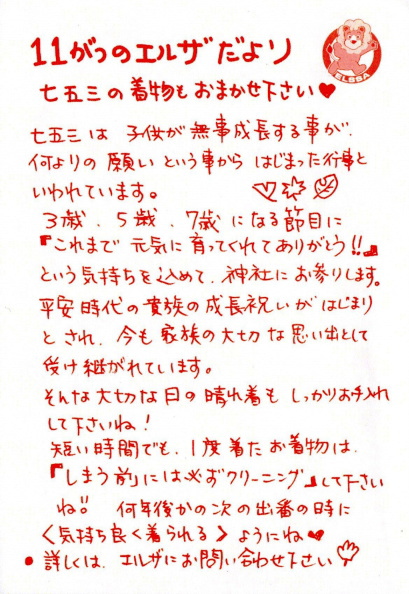 11がつのエルザだより
ELSA
七五三の着物もおまかせ下さい♥
七五三は 子供が無事成長する事が、
何よりの願いという事から はじまった行事と
いわれています。
3歳、5歳、7歳になる節目に
『これまで 元気に育ってくれてありがとう!!』
という気持ちを込めて、神社にお参りします。
平安時代の貴族の成長祝いがはじまり
とされ、今も家族の大切な思い出として
受け継がれています。
そんな大切な日の晴れ着も しっかりお手入れ
して下さいね!
短い時間でも、1度着たお着物は、
『しまう前』には必ずクリーニング』して下さい
ね!! 何年後かの次の出番の時に
〈気持ち良く着られる〉ようにね♥
●詳しくは、エルザにお問い合わせ下さい